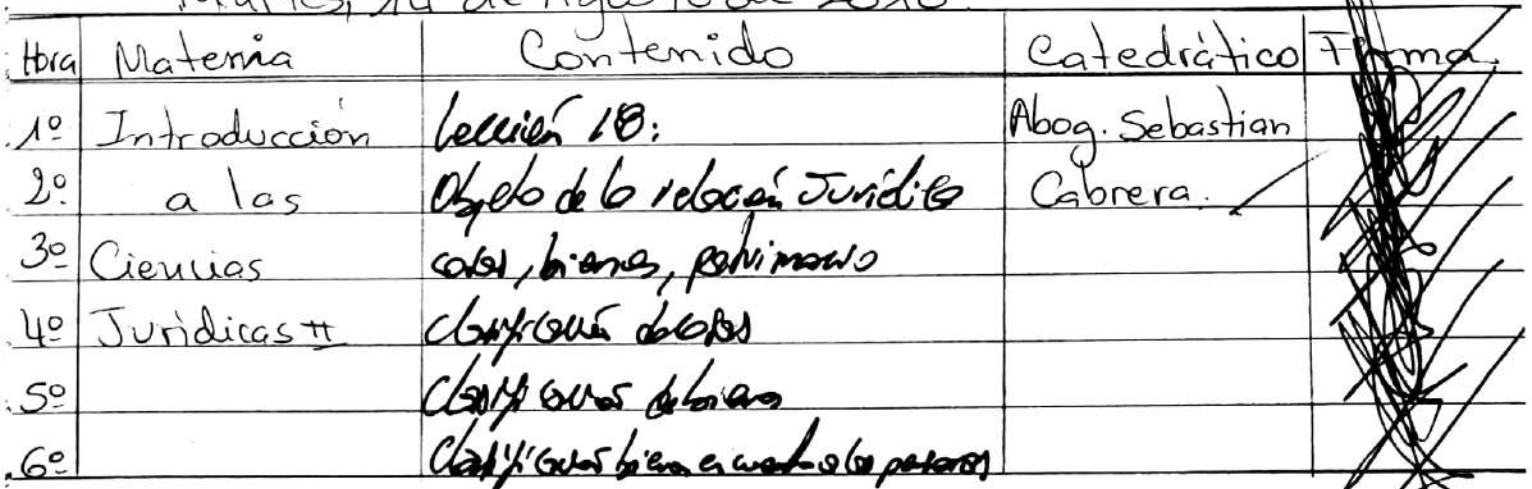 Martes, 14 de Agosto de 2018.
Hora Materia Contenido Catedrático Firma.
1º Introducción Lección 18: Abog. Sebastian
2º a las Objeto de la relación Jurídica Cabrera.
3º Ciencias cosas, bienes, patrimonio
4º Jurídicas II Clasificación de cosas
5º Clasificación de bienes
6º Clasificación bienes en cuanto a las personas